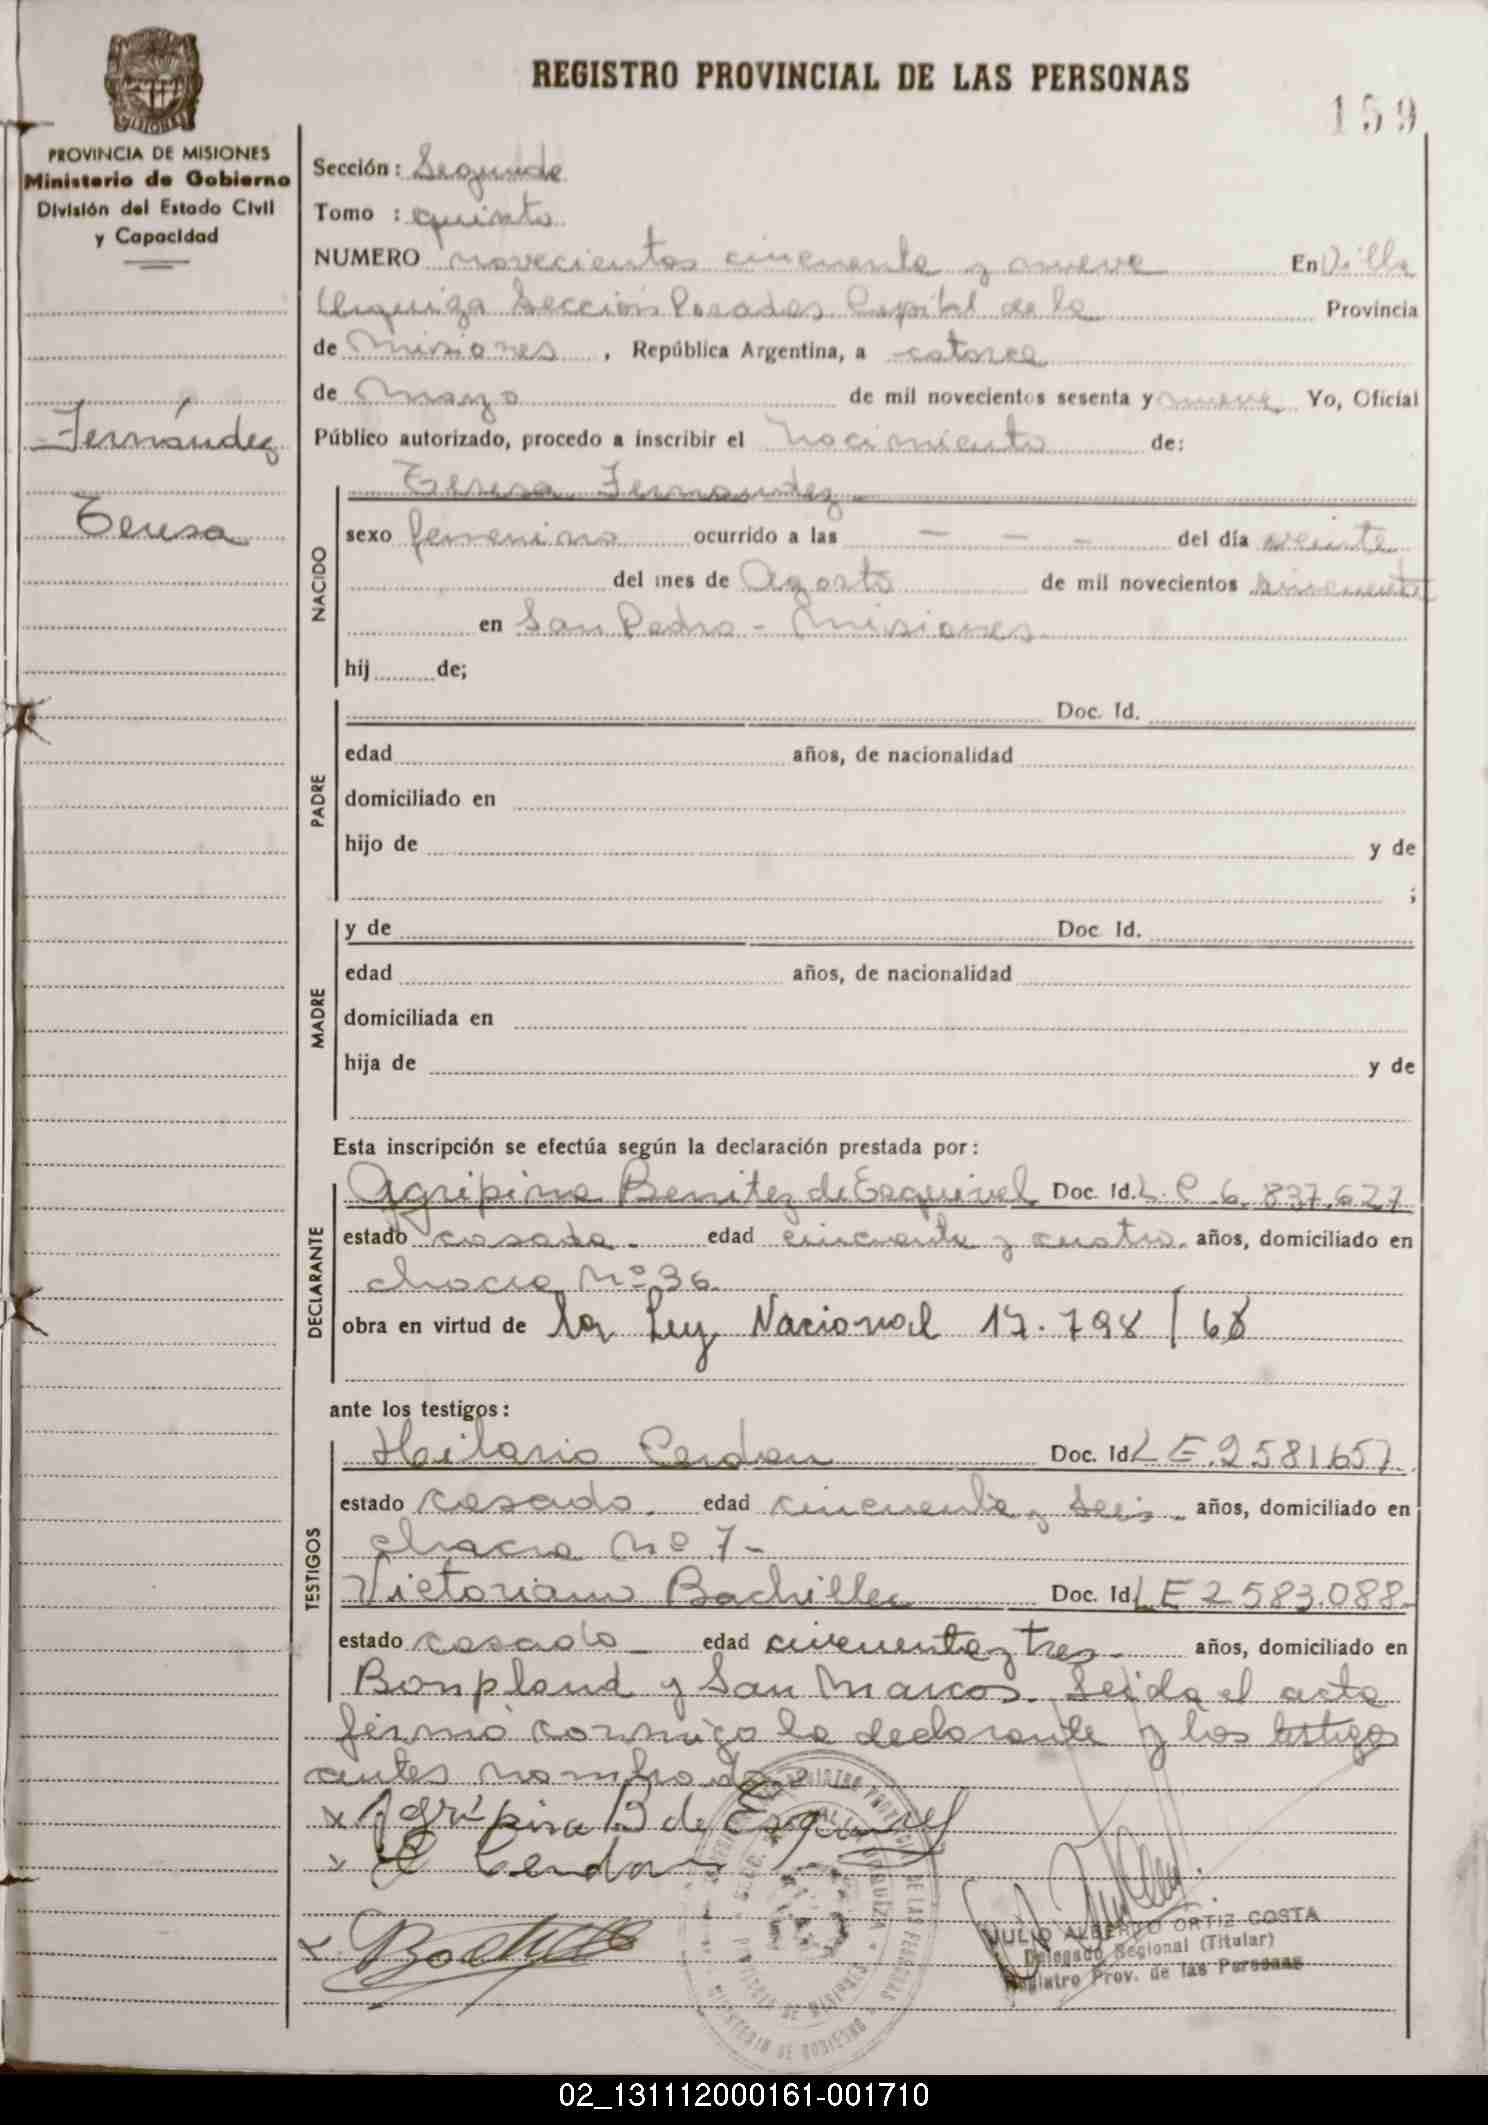 REGISTRO PROVINCIAL DE LAS PERSONAS
159
MISIONES
PROVINCIA DE MISIONES
Ministerio de Gobierno
División del Estado Civil
y Capacidad
Fernández
Teresa
Sección: Segunda
Tomo : quinto
NUMERO novecientos cincuenta y nueve En Villa
Urquiza Sección Posadas Capital de la Provincia
de Misiones, República Argentina, a catorce
de Marzo de mil novecientos sesenta y nueve Yo, Oficial
Público autorizado, procedo a inscribir el Nacimiento de:
NACIDO
Teresa Fernandez
sexo femenino ocurrido a las - - - del día veinte
del mes de Agosto de mil novecientos cincuenta
en San Pedro - Misiones
hij de;
PADRE
Doc. Id.
edad años, de nacionalidad
domiciliado en
hijo de y de
;
MADRE
y de Doc. Id.
edad años, de nacionalidad
domiciliada en
hija de y de
Esta inscripción se efectúa según la declaración prestada por:
DECLARANTE
Agripina Benitez de Esquivel Doc. Id. L.C. 6.837.627
estado casada - edad cincuenta y cuatro años, domiciliado en
chacra Nº 36
obra en virtud de la Ley Nacional 17.798/68
ante los testigos:
TESTIGOS
Hilario Cerdan Doc. Id. L E.2581.657
estado casado. edad cincuenta y seis - años, domiciliado en
chacra Nº 7 -
Victoriano Bachiller Doc. Id. L E 2583.088
estado casado - edad cincuenta y tres - años, domiciliado en
Bonpland y San Marcos. Leida el acta
firmó conmigo la declarante y los testigos
antes nombrados
x Agripina B de Esquivel
Cerdan
JULIO ALBERTO ORTIZ COSTA
Delegado Regional (Titular)
Registro Prov. de las Personas
02_131112000161-001710